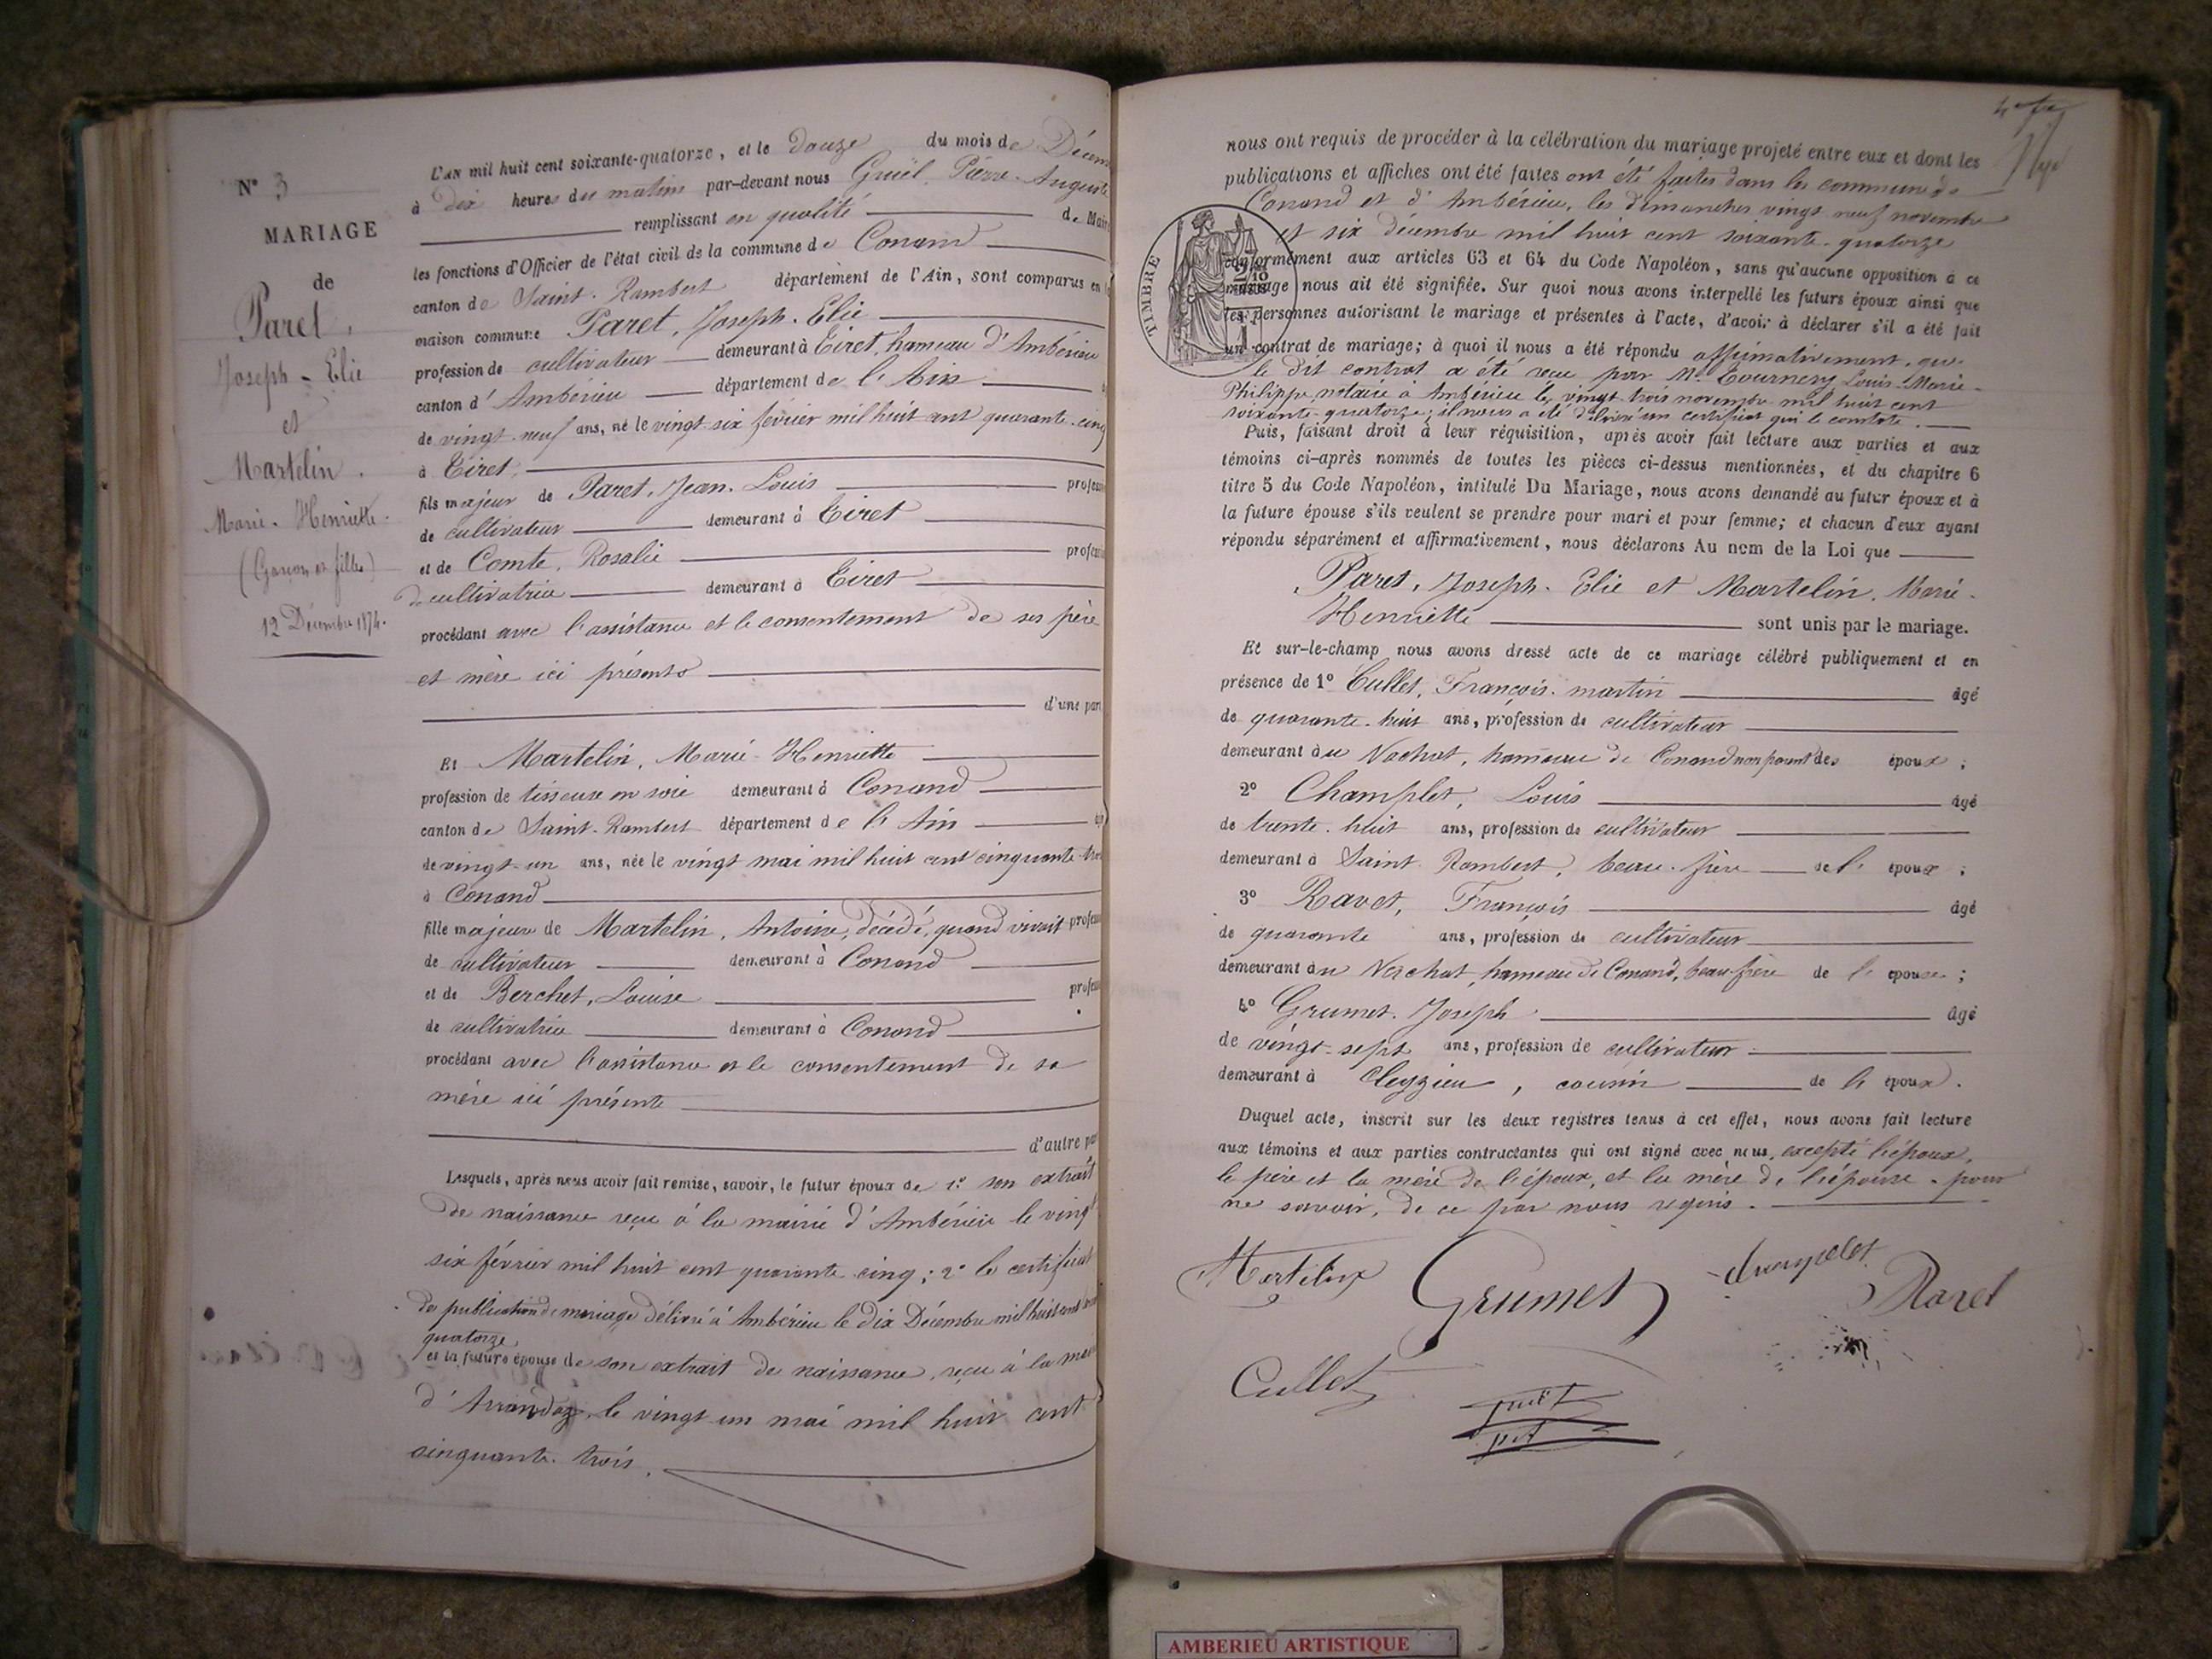 N° 3
MARIAGE
de
Paret,
Joseph-Elie
et
Martelin.
Marie-Henriette.
(Garçon et fille)
12 Décembre 1874.
L'an mil huit cent soixante-quatorze, et le douze du mois de Décem
à dix heures du matin par-devant nous Gruël, Pierre-Auguste
remplissant en qualité de Mair
les fonctions d'Officier de l'état civil de la commune de Conand
canton de Saint-Rambert département de l'Ain, sont comparus en l
maison commune Paret, Joseph-Elie
profession de cultivateur demeurant à Tiret, hameau d'Ambérieu
canton d'Ambérieu département de l'Ain
de vingt-neuf ans, né le vingt-six février mil huit cent quarante-cinq
à Tiret,
fils majeur de Paret, Jean-Louis profess
de cultivateur demeurant à Tiret
et de Comte, Rosalie profess
de cultivatrice demeurant à Tiret
procédant avec l'assistance et le consentement de ses père
et mère ici présents
d'une part
Et Martelin, Marie-Henriette
profession de tisseuse en soie demeurant à Conand
canton de Saint-Rambert département de l'Ain
de vingt-un ans, née le vingt mai mil huit cent cinquante-trois
à Conand
fille majeure de Martelin, Antoine, décédé, quand vivait profess
de cultivateur demeurant à Conand
et de Berchet, Louise profess
de cultivatrice demeurant à Conand
procédant avec l'assistance et le consentement de sa
mère ici présente
d'autre par
Lesquels, après nous avoir fait remise, savoir, le futur époux de 1° son extrait
de naissance reçu à la mairie d'Ambérieu le vingt
six février mil huit cent quarante-cinq; 2° le certificat
de publication de mariage délivré à Ambérieu le dix Décembre mil huit cent
quatorze
et la future épouse de son extrait de naissance, reçu à la mai
d'Arandas, le vingt-un mai mil huit cent
cinquante-trois.
nous ont requis de procéder à la célébration du mariage projeté entre eux et dont les
publications et affiches ont été faites ont été faites dans les communes de
Conand et d'Ambérieu, les dimanches vingt-neuf novembre
et six décembre mil huit cent soixante-quatorze
conformément aux articles 63 et 64 du Code Napoléon, sans qu'aucune opposition à ce
mariage nous ait été signifiée. Sur quoi nous avons interpellé les futurs époux ainsi que
les personnes autorisant le mariage et présentes à l'acte, d'avoir à déclarer s'il a été fait
un contrat de mariage; à quoi il nous a été répondu affirmativement, que
le dit contrat a été reçu par Me Tournery Louis-Marie-
Philippe, notaire à Ambérieu le vingt-trois novembre mil huit cent
soixante-quatorze; il nous a été délivré un certificat qui le constate.
Puis, faisant droit à leur réquisition, après avoir fait lecture aux parties et aux
témoins ci-après nommés de toutes les pièces ci-dessus mentionnées, et du chapitre 6
titre 5 du Code Napoléon, intitulé Du Mariage, nous avons demandé au futur époux et à
la future épouse s'ils veulent se prendre pour mari et pour femme; et chacun d'eux ayant
répondu séparément et affirmativement, nous déclarons Au nom de la Loi que
Paret, Joseph-Elie et Martelin, Marie-
Henriette sont unis par le mariage.
Et sur-le-champ nous avons dressé acte de ce mariage célébré publiquement et en
présence de 1° Cullet, François-martin âgé
de quarante-huit ans, profession de cultivateur
demeurant à u Nachat, hameau de Conand non parent des époux;
2° Champlet, Louis âgé
de trente-huit ans, profession de cultivateur
demeurant à Saint-Rambert, beau-frère de l'époux;
3° Ravet, François âgé
de quarante ans, profession de cultivateur
demeurant à u Nerchat, hameau de Conand, beau-frère de l'épouse;
4° Grumet, Joseph âgé
de vingt-sept ans, profession de cultivateur
demeurant à Cleyzieu, cousin de l'époux.
Duquel acte, inscrit sur les deux registres tenus à cet effet, nous avons fait lecture
aux témoins et aux parties contractantes qui ont signé avec nous, excepté l'époux,
le père et la mère de l'époux, et la mère de l'épouse, pour
ne savoir, de ce par nous requis.
Martelin Grumet Ravet
Cullet
TIMBRE
AMBERIEU ARTISTIQUE